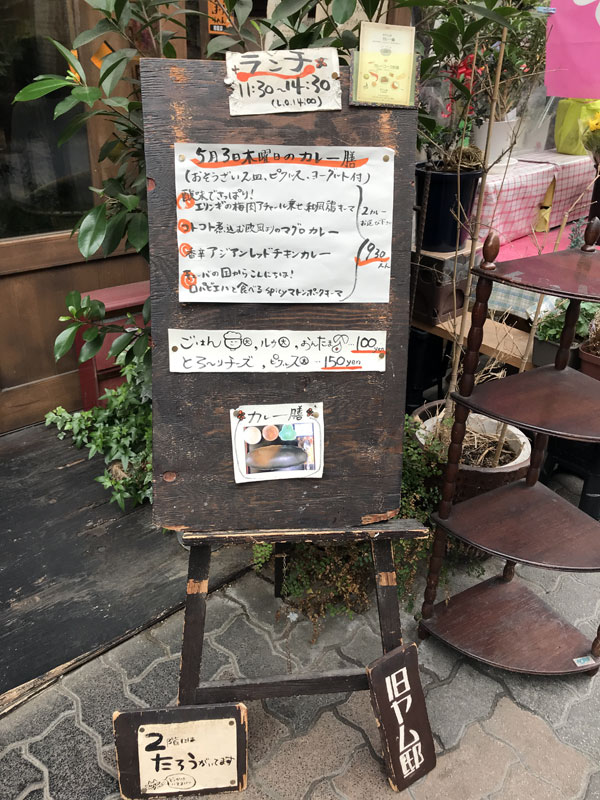 ランチ
11:30~14:30
(L.O.14:00)
5月3日木曜日のカレー膳
(おそうざい2皿、ピクルス、ヨーグルト付)
酸味でさっぱり!
エリンギの梅肉アチャール乗せ和風鶏キーマ
コトコト煮込む欧風よりのマグロカレー
香辛アジアンレッドチキンカレー
の国からこんにちは!
パピエハと食べるspicyマトンポークキーマ
2カレー
お選び下さい
930
ごはん 大、ルゥ大、おんたま…100yen
とろ〜りチーズ、ピクルス大…150yen
カレー膳
2階には
たろうがいてます
旧ヤム邸